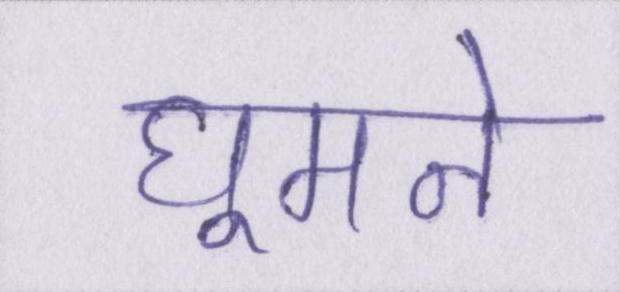 घूमने